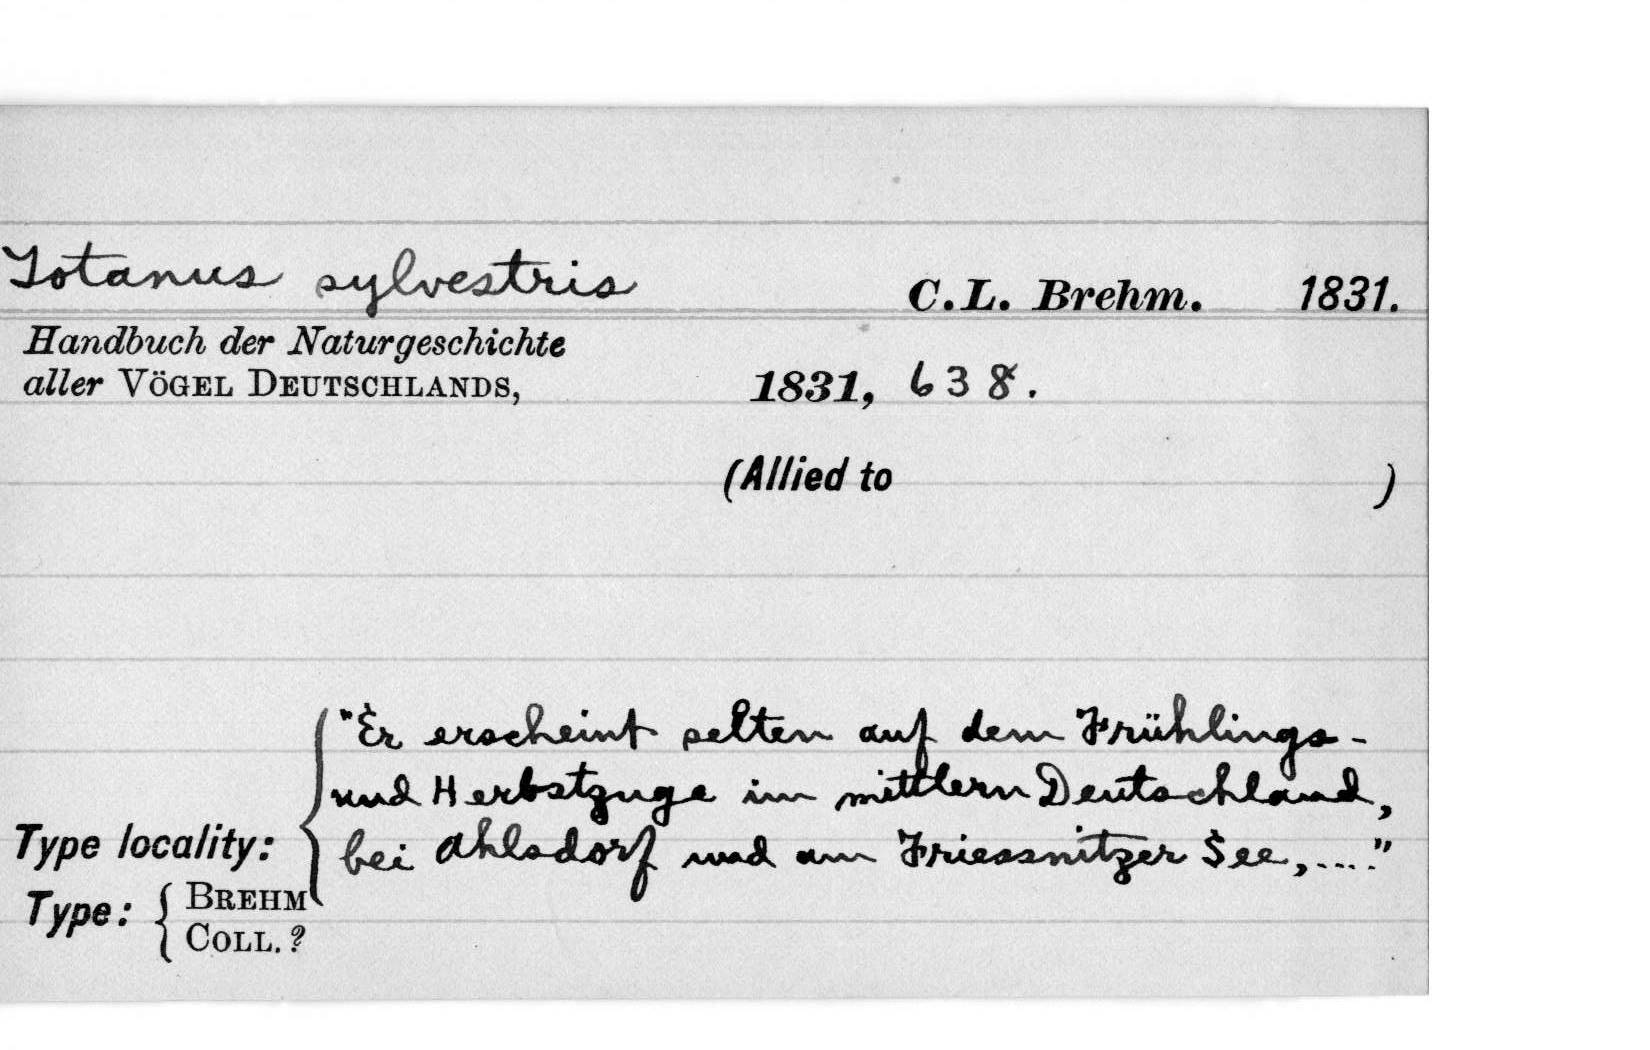 Totanus sylvestris C.L. Brehm. 1831.
Handbuch der Naturgeschichte
aller VÖGEL DEUTSCHLANDS, 1831, 638.
(Allied to )
"Er erscheint selten auf dem Frühlings-
und Herbstzuge im mittlern Deutschland,
Type locality: bei Ahlsdorf und am Friessnitzer See,...."
Type: BREHM
COLL.?